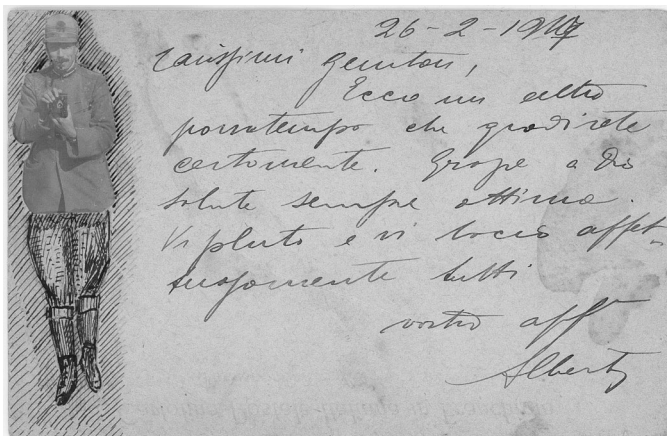 26-2-1917
Carissimi genitori,
Ecco un altro
passatempo che gradirete
certamente. Grazie a Dio
salute sempre ottima.
Vi saluto e vi bacio affet-
tuosamente tutti
vostro aff
Alberto